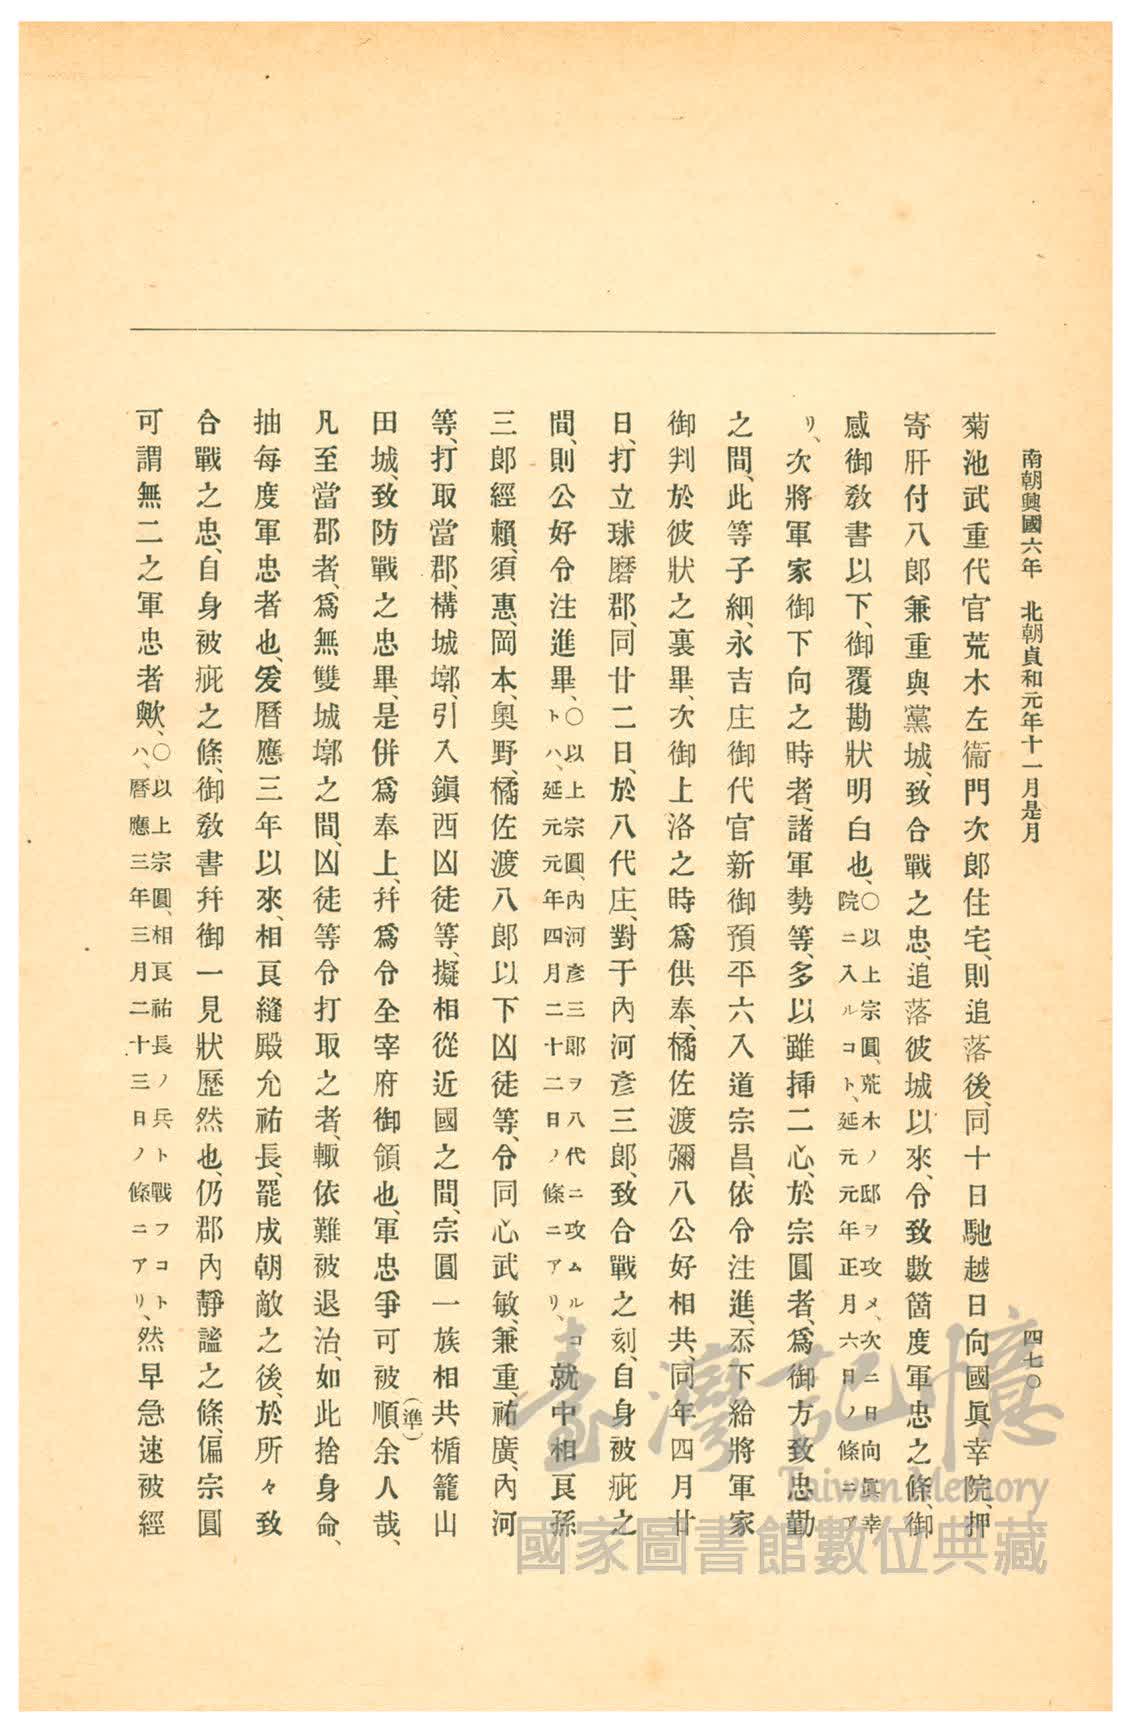 南朝興國六年　北朝貞和元年十一月是月　四七〇
菊池武重代官荒木左衞門次郎住宅、則追落後、同十日馳越日向國眞幸院、押
寄肝付八郎兼重與黨城、致合戰之忠、追落彼城以來、令致數箇度軍忠之條、御
感御敎書以下、御覆勘狀明白也、〇以上宗圓、荒木ノ邸ヲ攻メ、次ニ日向眞幸院ニ入ルコト、延元元年正月六日ノ條ニア
リ、次將軍家御下向之時者、諸軍勢等、多以雖揷二心、於宗圓者、爲御方致忠勤
之間、此等子細、永吉庄御代官新御預平六入道宗昌、依令注進、忝下給將軍家
御判於彼狀之裏畢、次御上洛之時爲供奉、橘佐渡彌八公好相共、同年四月廿
日、打立球磨郡、同廿二日、於八代庄、對于內河彥三郎、致合戰之刻、自身被疵之
間、則公好令注進畢、〇以上宗圓、內河彥三郞ヲ八代ニ攻ムルコトハ、延元元年四月二十二日ノ條ニアリ、就中相良孫
三郎經賴、須惠、岡本、奧野、橘佐渡八郎以下凶徒等、令同心武敏、兼重、祐廣、內河
等、打取當郡、構城墎、引入鎭西凶徒等、擬相從近國之間、宗圓一族相共楯籠山
田城、致防戰之忠畢、是併爲奉上、幷爲令全宰府御領也、軍忠爭可被順(準)余人哉、
凡至當郡者、爲無雙城墎之間、凶徒等令打取之者、輙依難被退治、如此捨身命、
抽每度軍忠者也、爰曆應三年以來、相良縫殿允祐長、罷成朝敵之後、於所々致
合戰之忠、自身被疵之條、御敎書幷御一見狀歷然也、仍郡內靜謐之條、偏宗圓
可謂無二之軍忠者歟、〇以上宗圓、相良祐長ノ兵ト戰フコトハ、曆應三年三月二十三日ノ條ニアリ、然早急速被經
臺灣記憶
Taiwan Memory
國家圖書館數位典藏